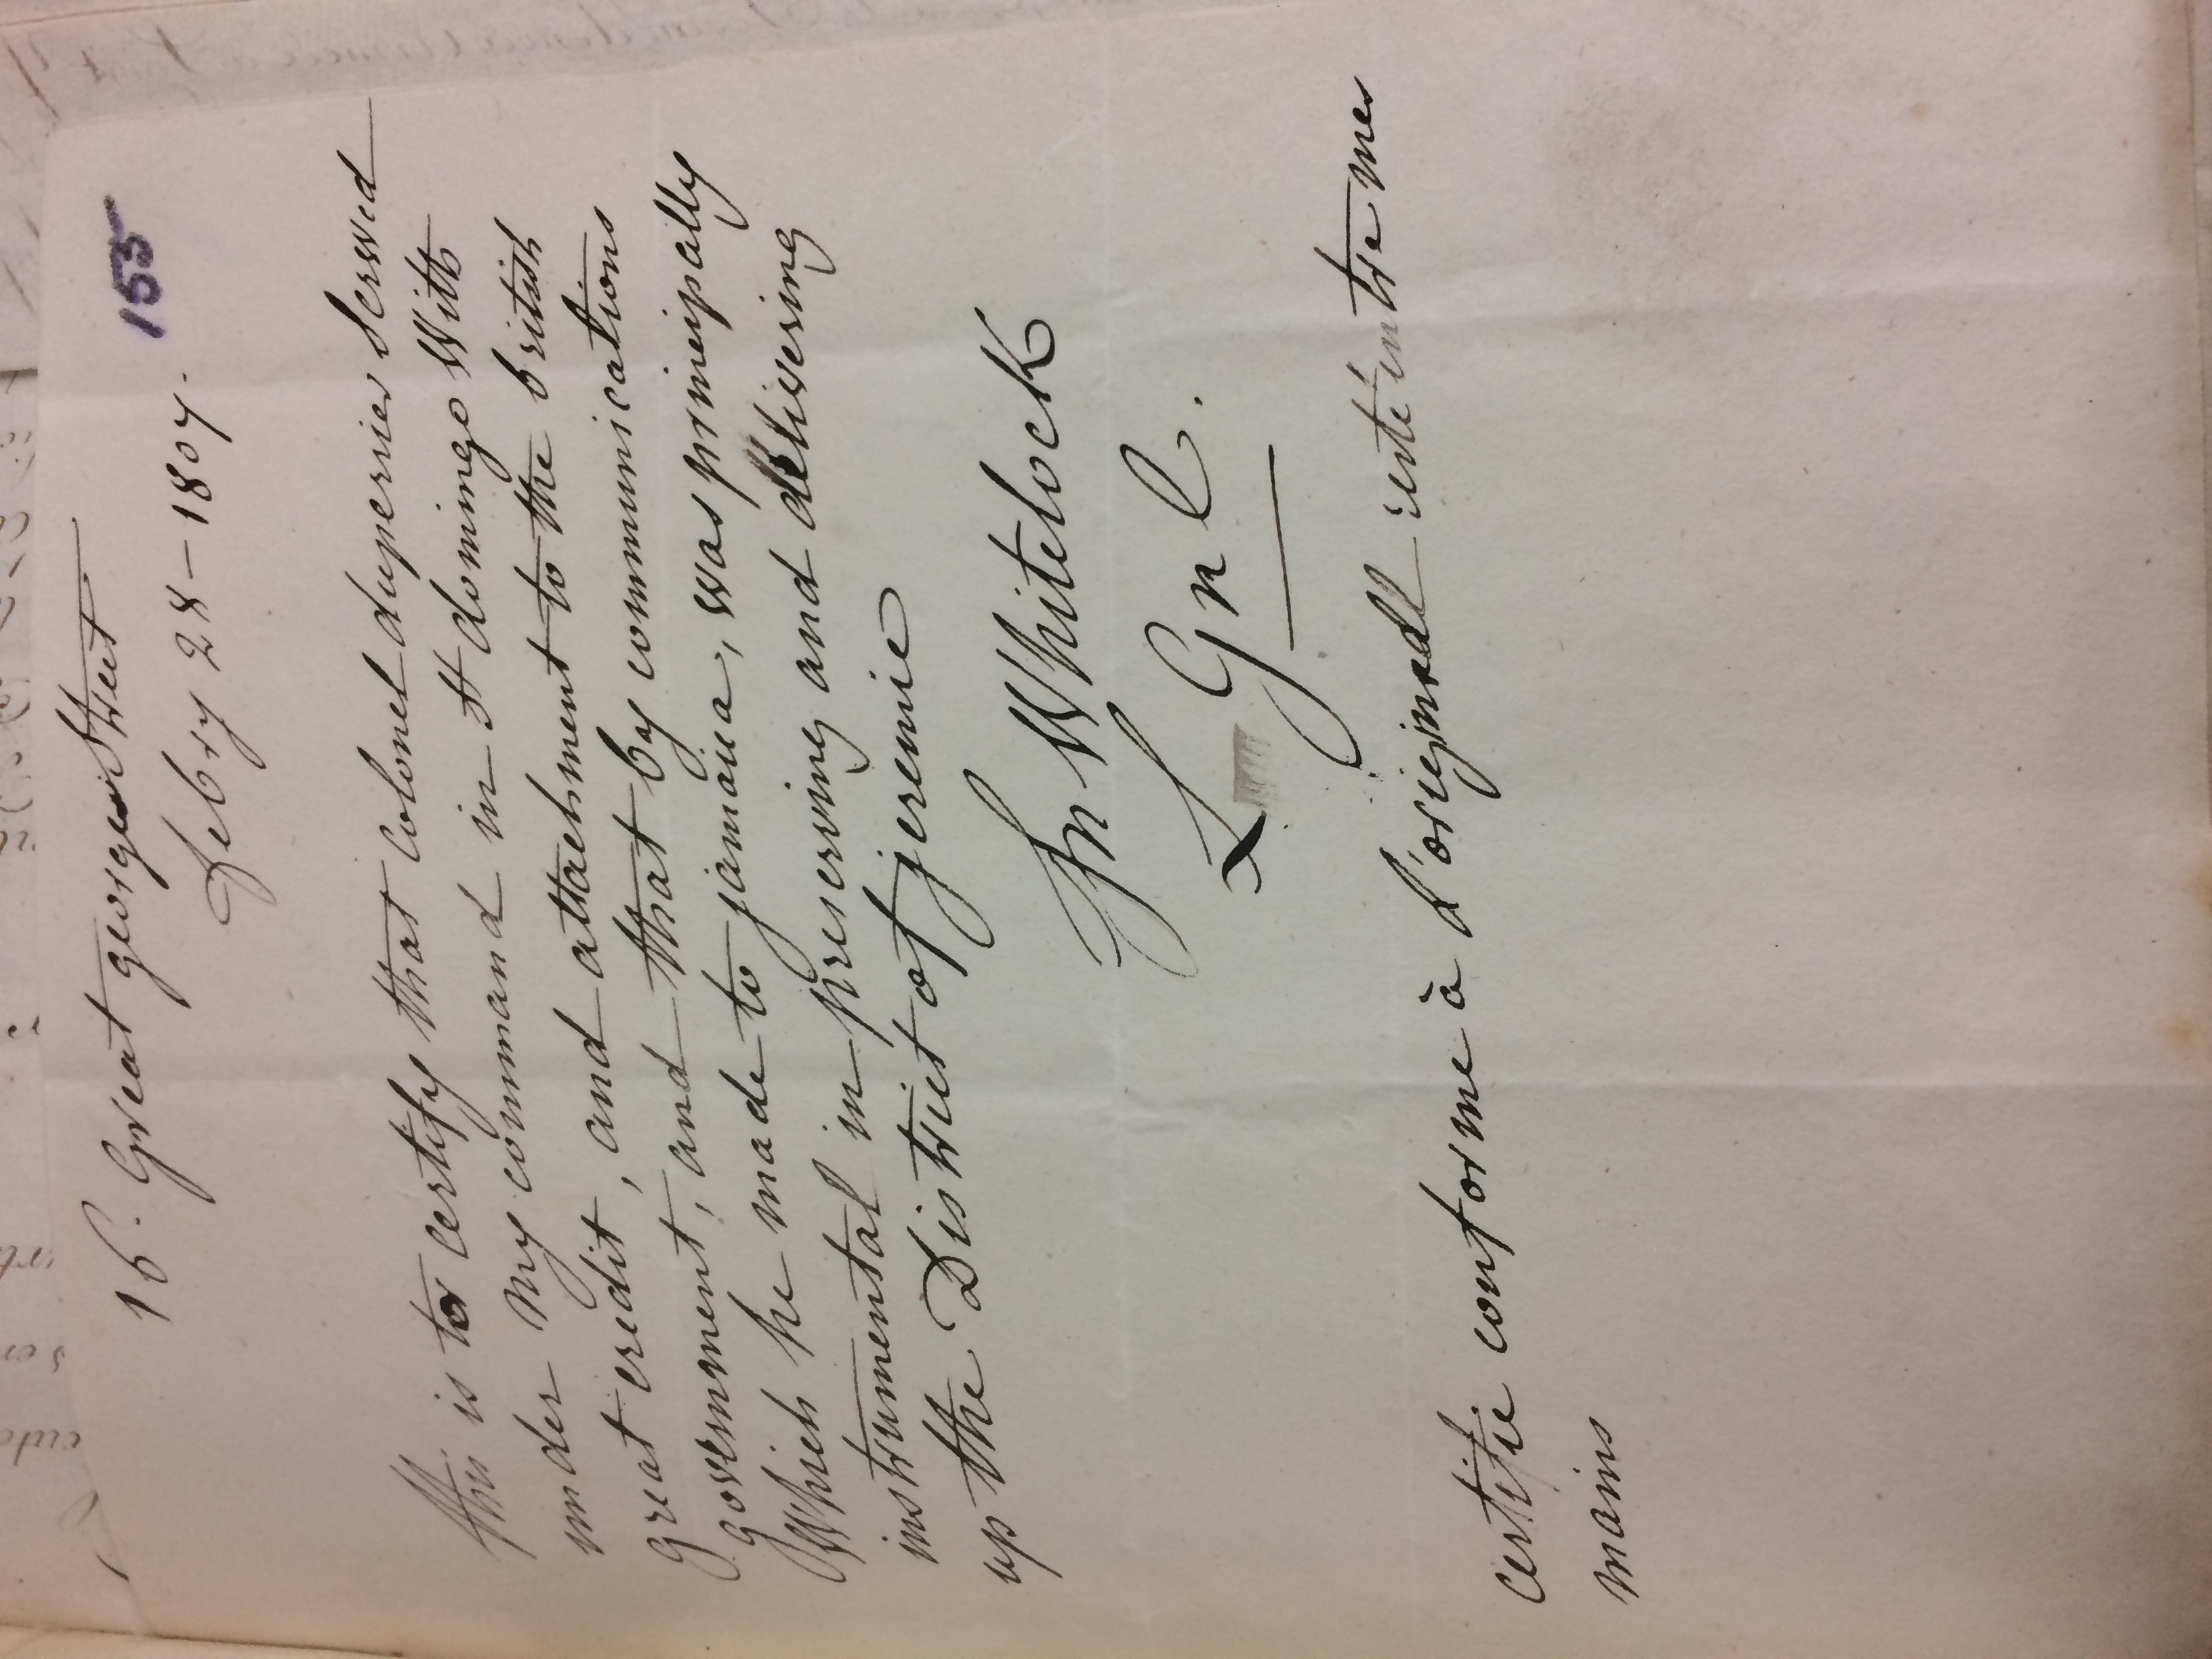 16. Great george Street
155
febry 28 - 1807.
this is to certify that colonel duperrier Serwed
under my command in St domingo With
great credit, and attachment to the british
government, and that by communications
Which he made to jamaica, was principally
instrumental in preserving and delivering
up the District of jeremie
Jn WhitelocK
L Gnl.
certifie conforme à L'originall resté entre mes
mains